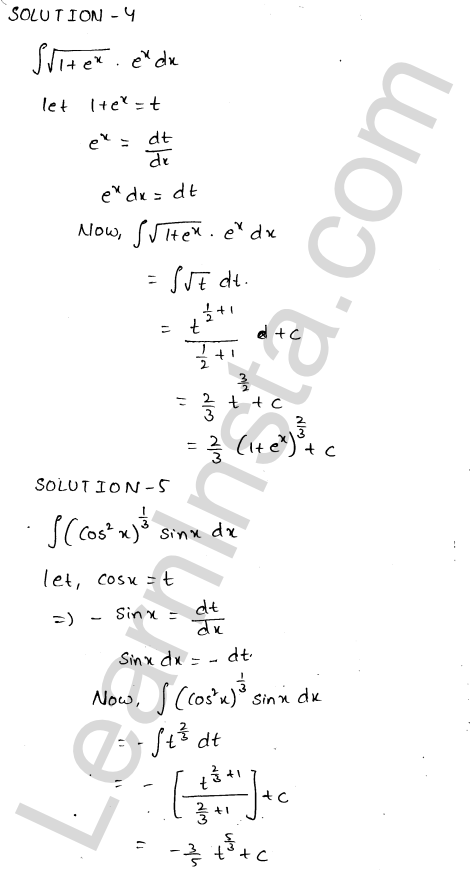 SOLUTION - 4
∫√1+eˣ . eˣ dx
let 1+eˣ = t
eˣ = dt/dx
eˣ dx = dt
Now, ∫√1+eˣ . eˣ dx
= ∫√t dt.
= t^(1/2 + 1) / (1/2 + 1) d + c
= 2/3 t^(3/2) + c
= 2/3 (1+eˣ)^(2/3) + c
SOLUTION - 5
∫(cos² x)^(1/3) sinx dx
let, cosx = t
=) - sinx = dt/dx
sinx dx = - dt.
Now, ∫(cos²x)^(1/3) sinx dx
= - ∫t^(2/3) dt
= - [t^(2/3 + 1) / (2/3 + 1)] + c
= -3/5 t^(5/3) + c
LearnInsta.com